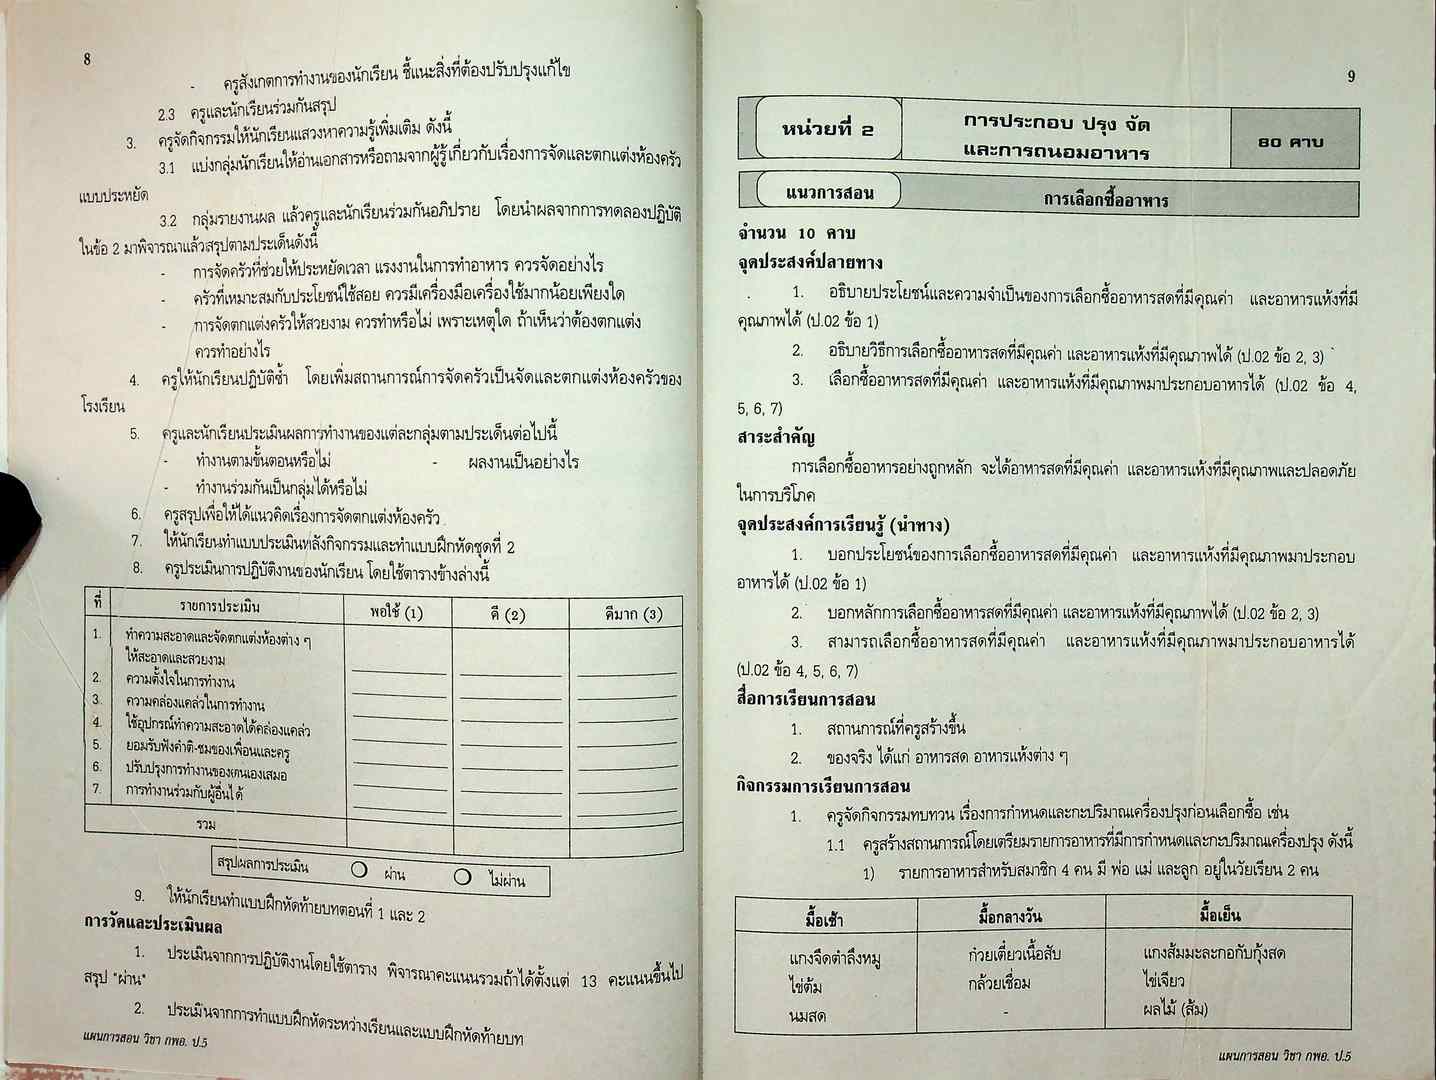 8
- ครูสังเกตการทำงานของนักเรียน ชี้แนะสิ่งที่ต้องปรับปรุงแก้ไข
2.3 ครูและนักเรียนร่วมกันสรุป
3. ครูจัดกิจกรรมให้นักเรียนแสวงหาความรู้เพิ่มเติม ดังนี้
3.1 แบ่งกลุ่มนักเรียนให้อ่านเอกสารหรือถามจากผู้รู้เกี่ยวกับเรื่องการจัดและตกแต่งห้องครัว
แบบประหยัด
3.2 กลุ่มรายงานผล แล้วครูและนักเรียนร่วมกันอภิปราย โดยนำผลจากการทดลองปฏิบัติ
ในข้อ 2 มาพิจารณาแล้วสรุปตามประเด็นดังนี้
- การจัดครัวที่ช่วยให้ประหยัดเวลา แรงงานในการทำอาหาร ควรจัดอย่างไร
- ครัวที่เหมาะสมกับประโยชน์ใช้สอย ควรมีเครื่องมือเครื่องใช้มากน้อยเพียงใด
- การจัดตกแต่งครัวให้สวยงาม ควรทำหรือไม่ เพราะเหตุใด ถ้าเห็นว่าต้องตกแต่ง
ควรทำอย่างไร
4. ครูให้นักเรียนปฏิบัติซ้ำ โดยเพิ่มสถานการณ์การจัดครัวเป็นจัดและตกแต่งห้องครัวของ
โรงเรียน
5. ครูและนักเรียนประเมินผลการทำงานของแต่ละกลุ่มตามประเด็นต่อไปนี้
- ทำงานตามขั้นตอนหรือไม่ - ผลงานเป็นอย่างไร
- ทำงานร่วมกันเป็นกลุ่มได้หรือไม่
6. ครูสรุปเพื่อให้ได้แนวคิดเรื่องการจัดตกแต่งห้องครัว
7. ให้นักเรียนทำแบบประเมินหลังกิจกรรมและทำแบบฝึกหัดชุดที่ 2
8. ครูประเมินการปฏิบัติงานของนักเรียน โดยใช้ตารางข้างล่างนี้
ที่ รายการประเมิน พอใช้ (1) ดี (2) ดีมาก (3)
1. ทำความสะอาดและจัดตกแต่งห้องต่าง ๆ
ให้สะอาดและสวยงาม
2. ความตั้งใจในการทำงาน
3. ความคล่องแคล่วในการทำงาน
4. ใช้อุปกรณ์ทำความสะอาดได้คล่องแคล่ว
5. ยอมรับฟังคำติ-ชมของเพื่อนและครู
6. ปรับปรุงการทำงานของตนเองเสมอ
7. การทำงานร่วมกับผู้อื่นได้
รวม
สรุปผลการประเมิน ผ่าน ไม่ผ่าน
9. ให้นักเรียนทำแบบฝึกหัดท้ายบทตอนที่ 1 และ 2
การวัดและประเมินผล
1. ประเมินจากการปฏิบัติงานโดยใช้ตาราง พิจารณาคะแนนรวมถ้าได้ตั้งแต่ 13 คะแนนขึ้นไป
สรุป "ผ่าน"
2. ประเมินจากการทำแบบฝึกหัดระหว่างเรียนและแบบฝึกหัดท้ายบท
แผนการสอน วิชา กพอ. ป.5
9
หน่วยที่ 2 การประกอบ ปรุง จัด
และการถนอมอาหาร 80 คาบ
แนวการสอน การเลือกซื้ออาหาร
จำนวน 10 คาบ
จุดประสงค์ปลายทาง
1. อธิบายประโยชน์และความจำเป็นของการเลือกซื้ออาหารสดที่มีคุณค่า และอาหารแห้งที่มี
คุณภาพได้ (ป.02 ข้อ 1)
2. อธิบายวิธีการเลือกซื้ออาหารสดที่มีคุณค่า และอาหารแห้งที่มีคุณภาพได้ (ป.02 ข้อ 2, 3)
3. เลือกซื้ออาหารสดที่มีคุณค่า และอาหารแห้งที่มีคุณภาพมาประกอบอาหารได้ (ป.02 ข้อ 4,
5, 6, 7)
สาระสำคัญ
การเลือกซื้ออาหารอย่างถูกหลัก จะได้อาหารสดที่มีคุณค่า และอาหารแห้งที่มีคุณภาพและปลอดภัย
ในการบริโภค
จุดประสงค์การเรียนรู้ (นำทาง)
1. บอกประโยชน์ของการเลือกซื้ออาหารสดที่มีคุณค่า และอาหารแห้งที่มีคุณภาพมาประกอบ
อาหารได้ (ป.02 ข้อ 1)
2. บอกหลักการเลือกซื้ออาหารสดที่มีคุณค่า และอาหารแห้งที่มีคุณภาพได้ (ป.02 ข้อ 2, 3)
3. สามารถเลือกซื้ออาหารสดที่มีคุณค่า และอาหารแห้งที่มีคุณภาพมาประกอบอาหารได้
(ป.02 ข้อ 4, 5, 6, 7)
สื่อการเรียนการสอน
1. สถานการณ์ที่ครูสร้างขึ้น
2. ของจริง ได้แก่ อาหารสด อาหารแห้งต่าง ๆ
กิจกรรมการเรียนการสอน
1. ครูจัดกิจกรรมทบทวน เรื่องการกำหนดและกะปริมาณเครื่องปรุงก่อนเลือกซื้อ เช่น
1.1 ครูสร้างสถานการณ์โดยเตรียมรายการอาหารที่มีการกำหนดและกะปริมาณเครื่องปรุง ดังนี้
1) รายการอาหารสำหรับสมาชิก 4 คน มี พ่อ แม่ และลูก อยู่ในวัยเรียน 2 คน
มื้อเช้า มื้อกลางวัน มื้อเย็น
แกงจืดตำลึงหมู ก๋วยเตี๋ยวเนื้อสับ แกงส้มมะละกอกับกุ้งสด
ไข่ต้ม กล้วยเชื่อม ไข่เจียว
นมสด - ผลไม้ (ส้ม)
แผนการสอน วิชา กพอ. ป.5